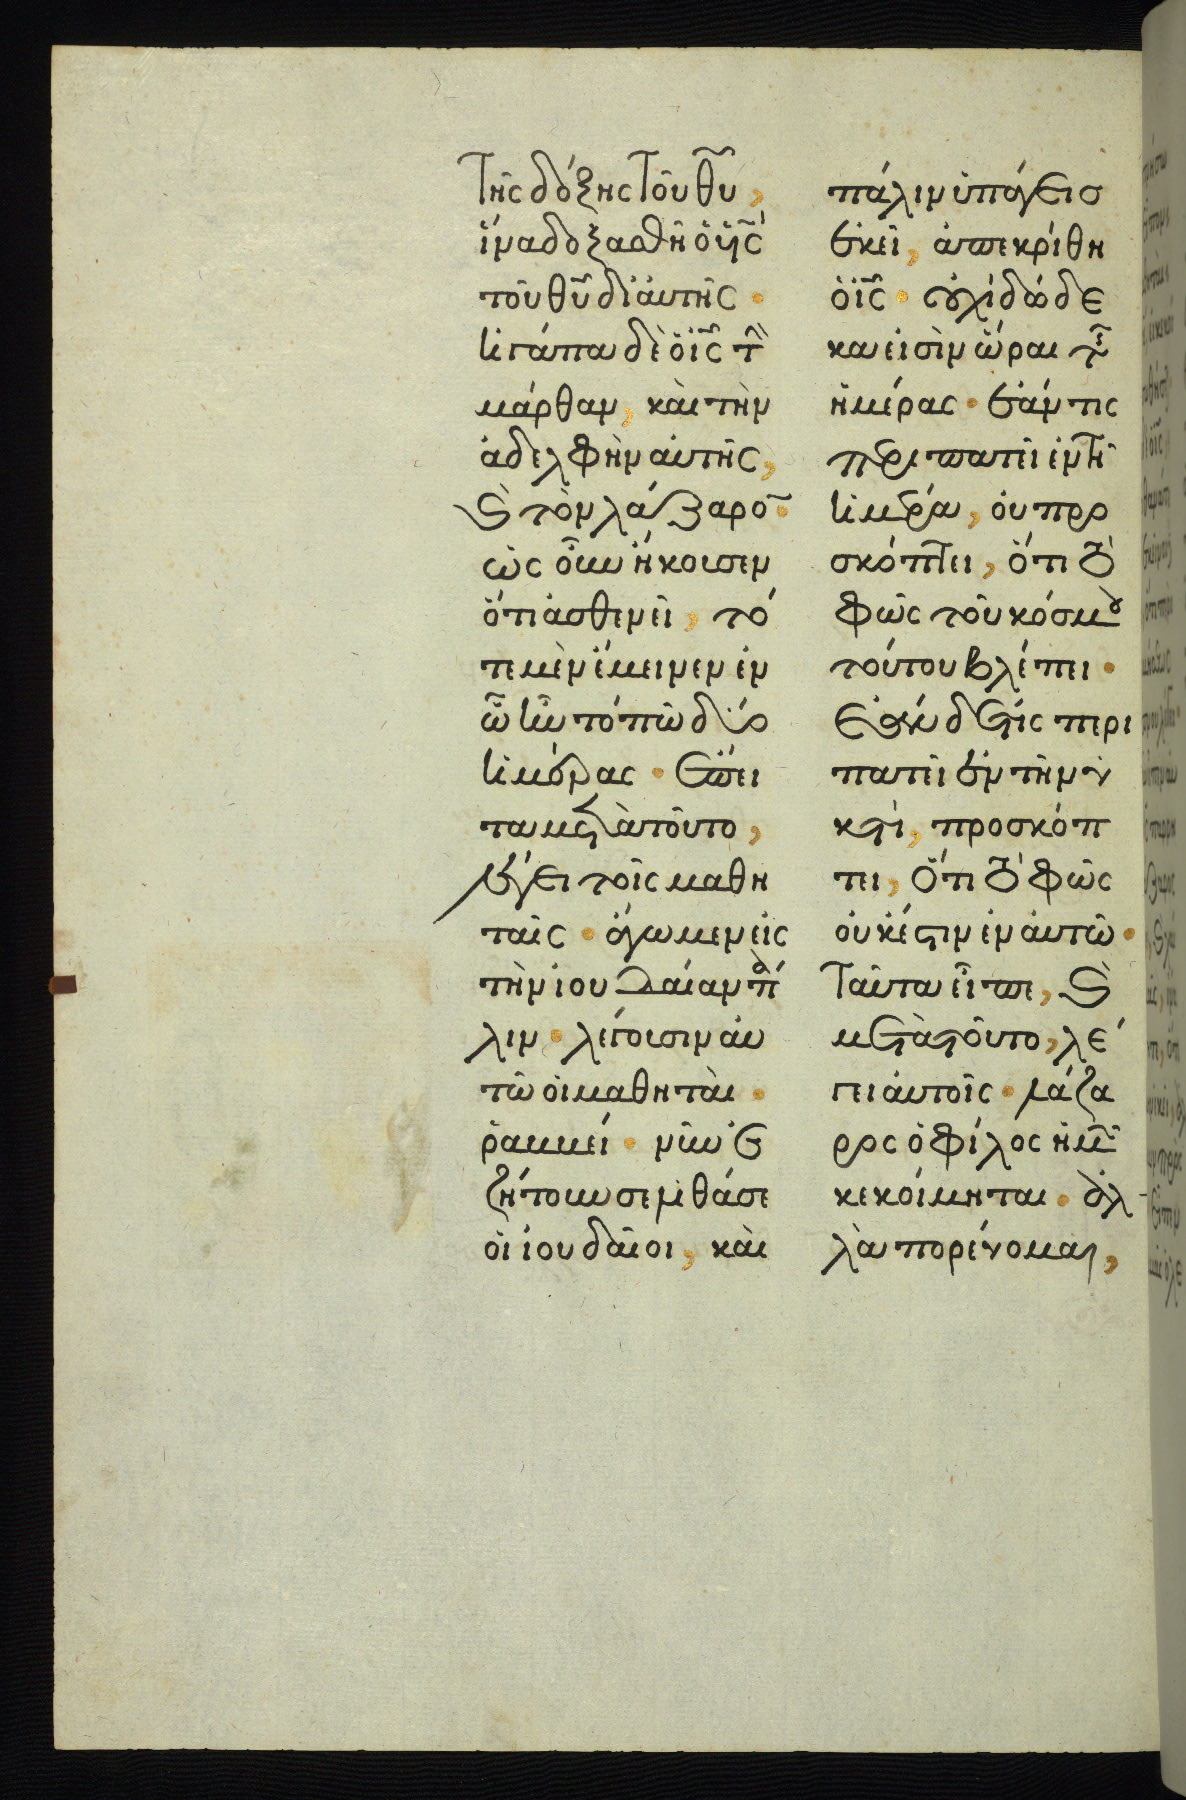 τῆς δόξης τοῦ θῦ,
ἵνα δοξασθῆ ὁ υἱς
τοῦ θῦ δι αὐτῆς·
ἠγάπα δὲ ὁ ἰς τὴ
μάρθαν, καὶ τὴν
ἀδελφὴν αὐτῆς,
καὶ τὸν λάζαρο·
ὡς οὖν ἤκουσεν
ὅτι ἀσθενεῖ, τό
τε μὲν ἔμεινεν ἐν
ὧ ἦν τόπω δύο
ἡμέρας· ἔπει
τα μετὰ τοῦτο,
λέγει τοῖς μαθη
ταῖς· ἄγωμεν εἰς
τὴν ἰουδαίαν πά
λιν· λέγουσιν αὐ
τῶ οἱ μαθηταὶ·
ῥαββεί· νῦν ἐ
ζήτουν σε λιθάσε
οἱ ἰουδαῖοι, καὶ
πάλιν ὑπάγεις
ἐκεῖ, ἀπεκρίθη
ὁ ἰς· οὐχὶ δώδε
κα εἰσὶν ὧραι τῆς
ἡμέρας· ἐάν τις
περιπατεῖ ἐν τῆ
ἡμέρα, οὐ προ
σκόπτει, ὅτι τὸ
φῶς τοῦ κόσμου
τούτου βλέπει·
ἐὰν δέ τις περι
πατεῖ ἐν τῆ νυ
κτὶ, προσκόπ
τει, ὅτι τὸ φῶς
οὐκ ἔστιν ἐν αὐτῶ·
ταῦτα εἶπε, καὶ
μετὰ τοῦτο, λέ
γει αὐτοῖς· λάζα
ρος ὁ φίλος ἡμῶ
κεκοίμηται· ἀλ
λὰ πορεύομαι,